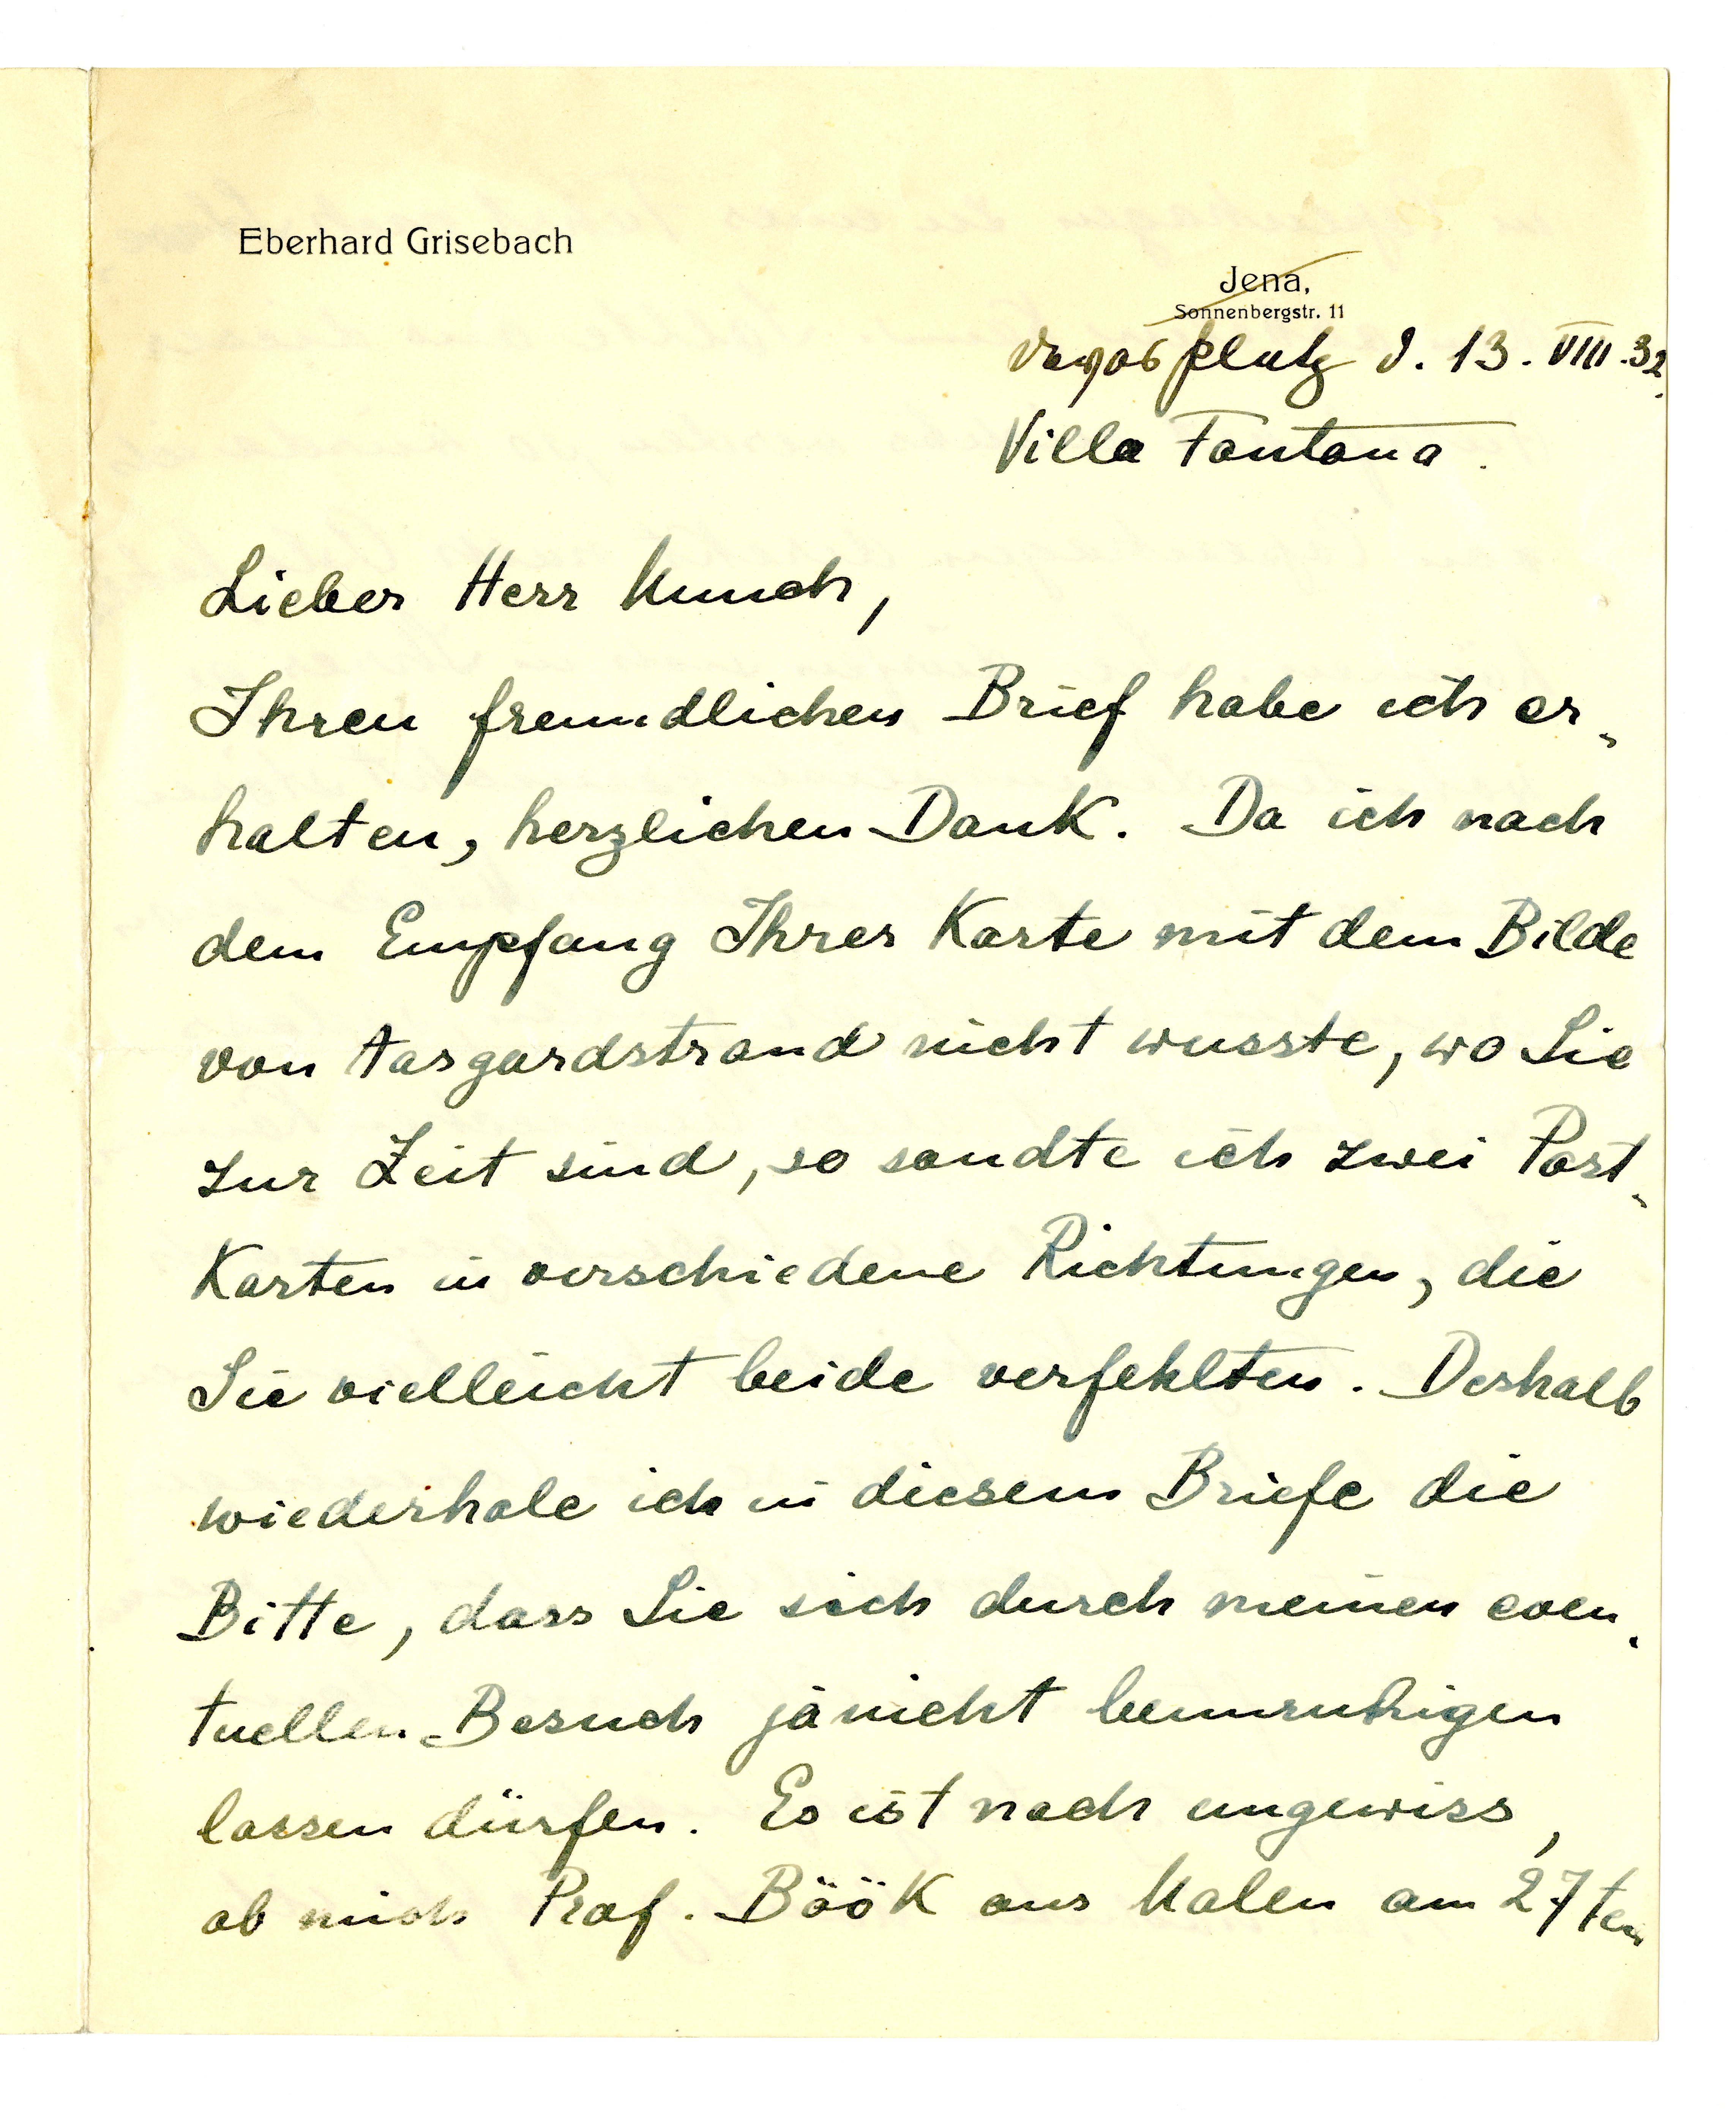 Eberhard Grisebach
Jena,
Sonnenbergstr. 11
Davos Platz d. 13. VIII. 32.
Villa Fontana.
Lieber Herr Munch,
Ihren freundlichen Brief habe ich er-
halten, herzlichen Dank. Da ich nach
dem Empfang Ihrer Karte mit dem Bilde
von Aasgardstrand nicht wusste, wo Sie
zur Zeit sind, so sandte ich zwei Post-
Karten in verschiedene Richtungen, die
Sie vielleicht beide verfehlten. Deshalb
wiederhole ich in diesem Briefe die
Bitte, dass Sie sich durch meinen even-
tuellen Besuch ja nicht beunruhigen
lassen dürfen. Es ist noch ungewiss,
ob mich Prof. Böök aus Malen am 27ten